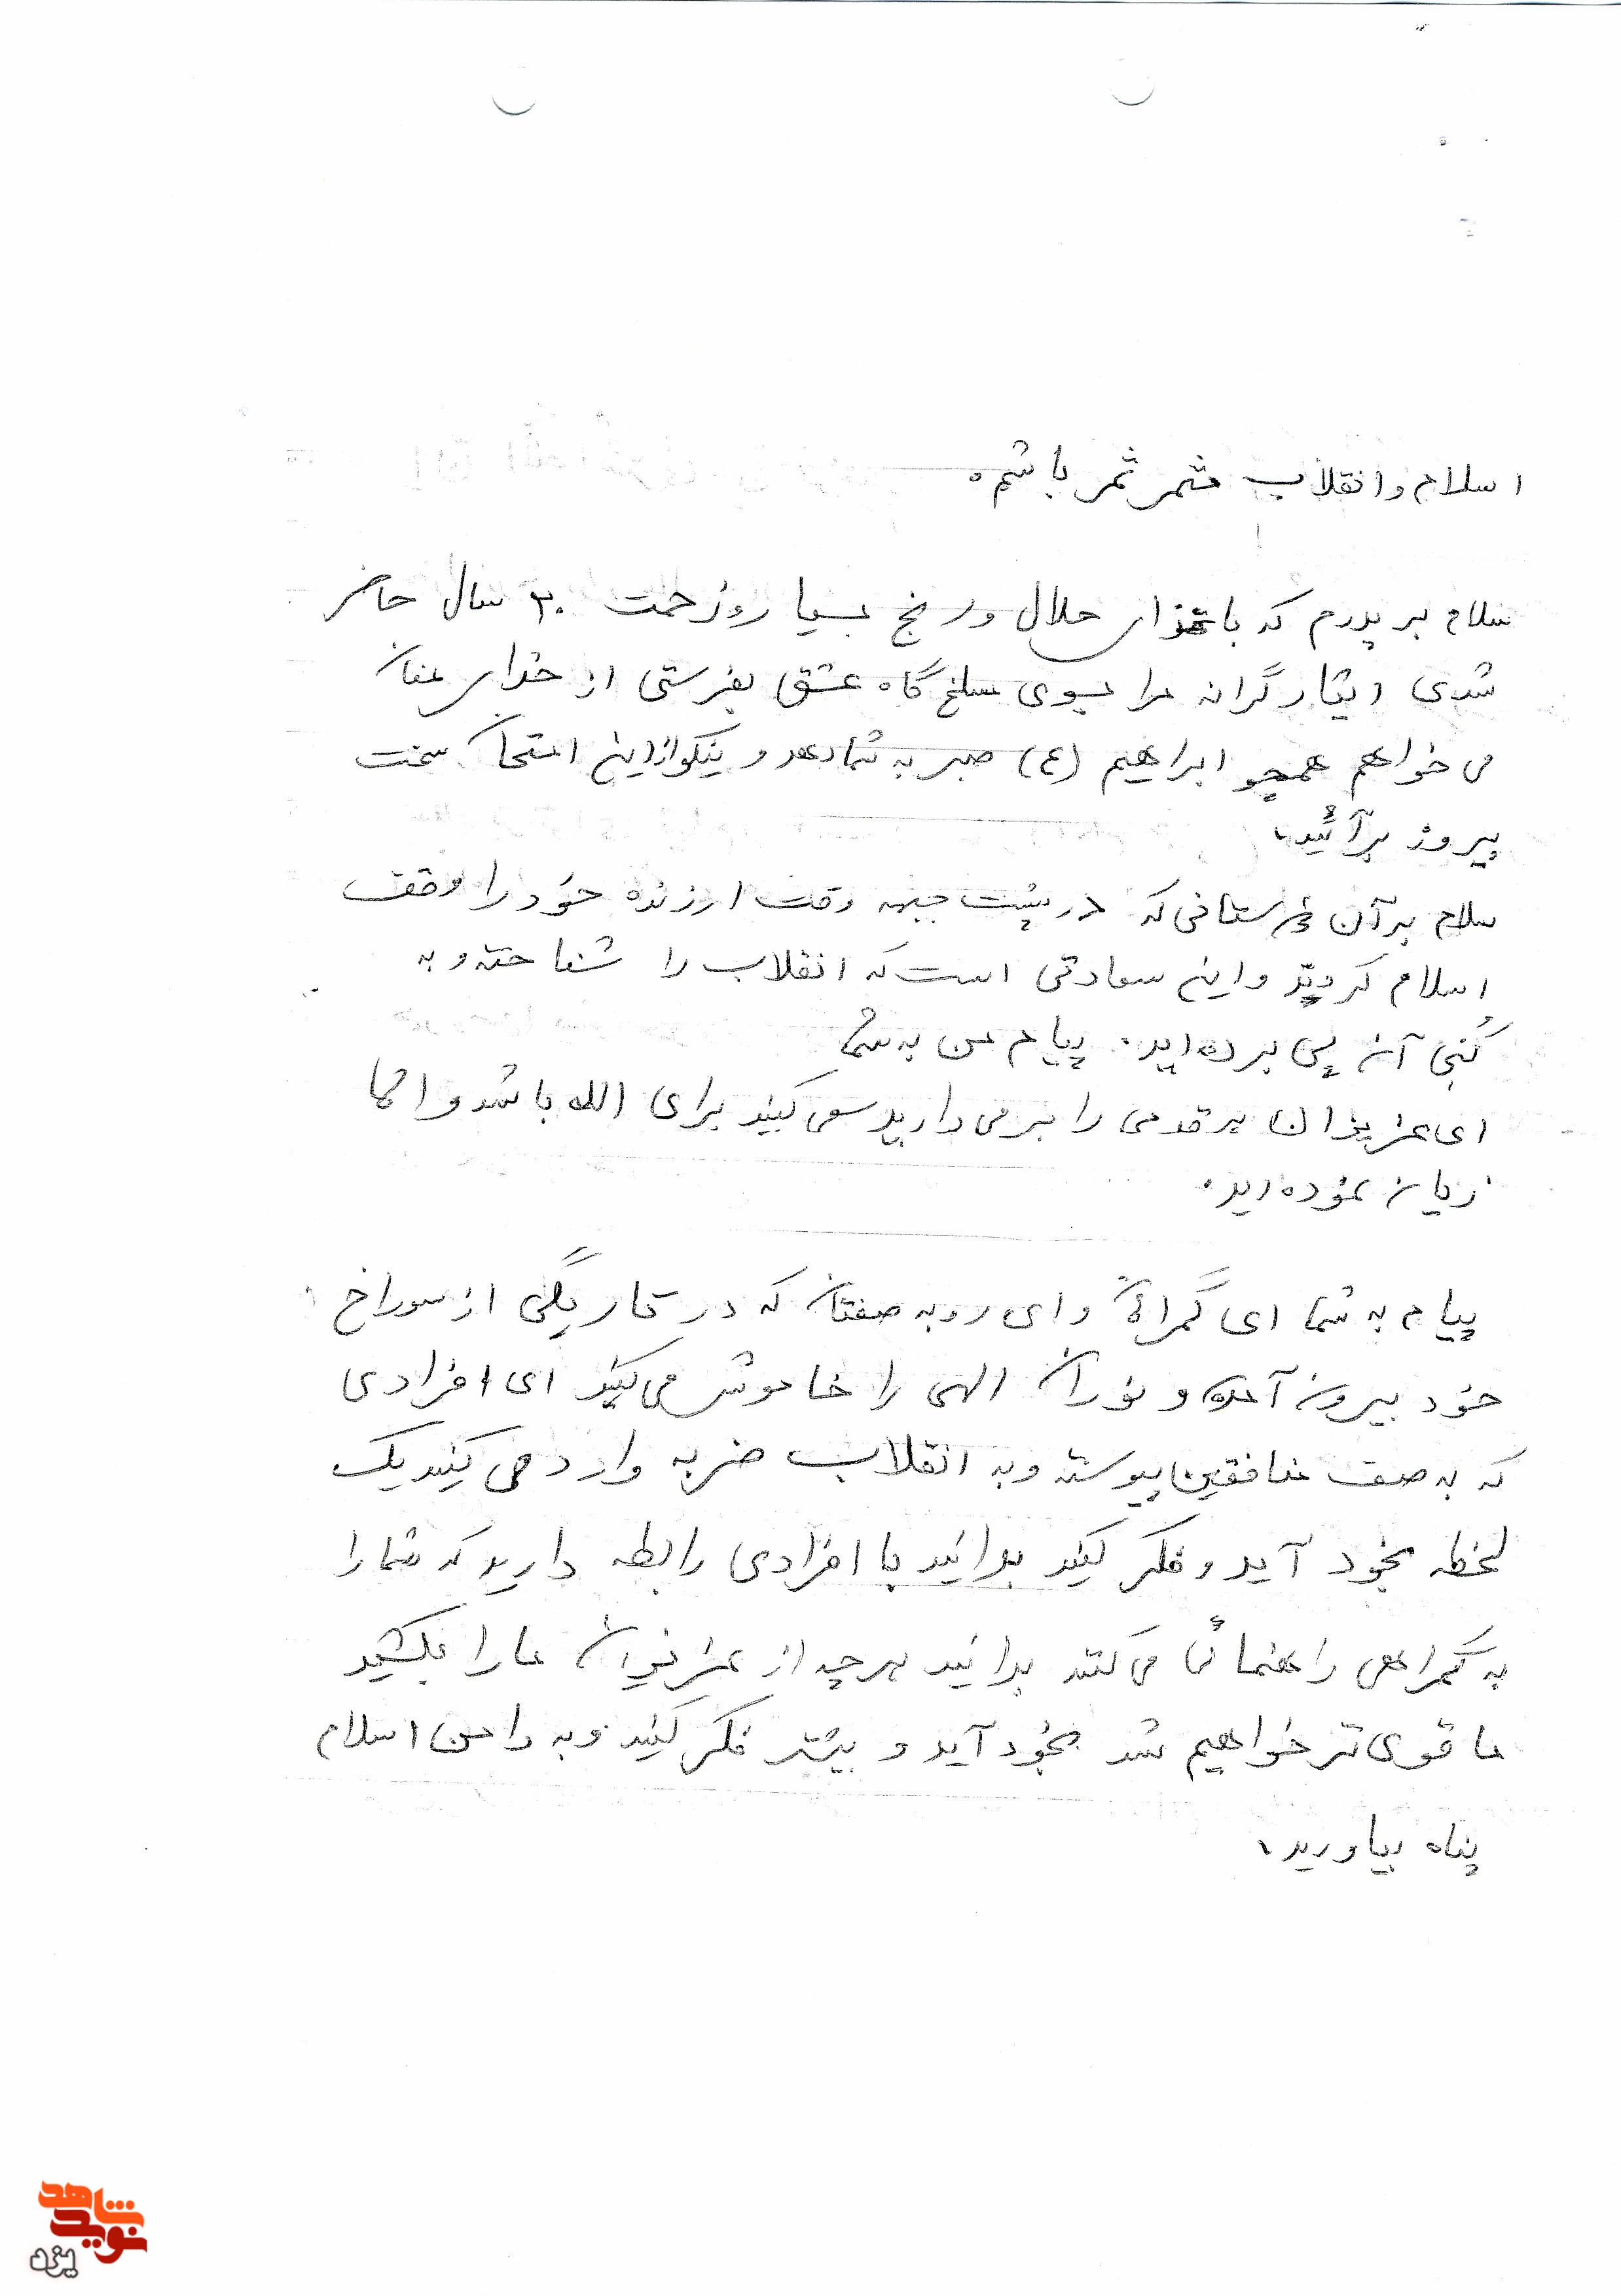 اسلام و انقلاب مثمر ثمر باشم.
سلام بر پدرم که با غذای حلال و رنج بسیار و زحمت ۲۰ سال حاضر
شدی ایثارگرانه مرا بسوی مسلخ گاه عشق بفرستی از خدای منان
می خواهم همچو ابراهیم (ع) صبر به شما دهد و نیکو از این امتحان سخت
پیروز برآئید.
سلام بر آن که در پشت جبهه وقت ارزنده خود را وقف
اسلام کردید و این سعادتی است که انقلاب را شناخته و به
آن پی برده اید. پیام من به شما
ای عزیزان هر قدمی را بر می دارید سعی کنید برای الله باشد و الا
زیان نموده اید.
پیام به شما ای گمراهان و ای روبه صفتان که در تاریکی از سوراخ
خود بیرون آمده و نوران الهی را خاموش می کنید ای افرادی
که به صف منافقین پیوسته و به انقلاب ضربه وارد می کنید یک
لحظه بخود آید و فکر کنید بدانید با افرادی رابطه دارید که شما را
به گمراهی راهنمائی می کنند بدانید هرچه از عزیزان ما را بکشید
ما قوی تر خواهیم شد بخود آید و بیشتر فکر کنید و به دامن اسلام
پناه بیاورید.
شاهد
نوید
یزد